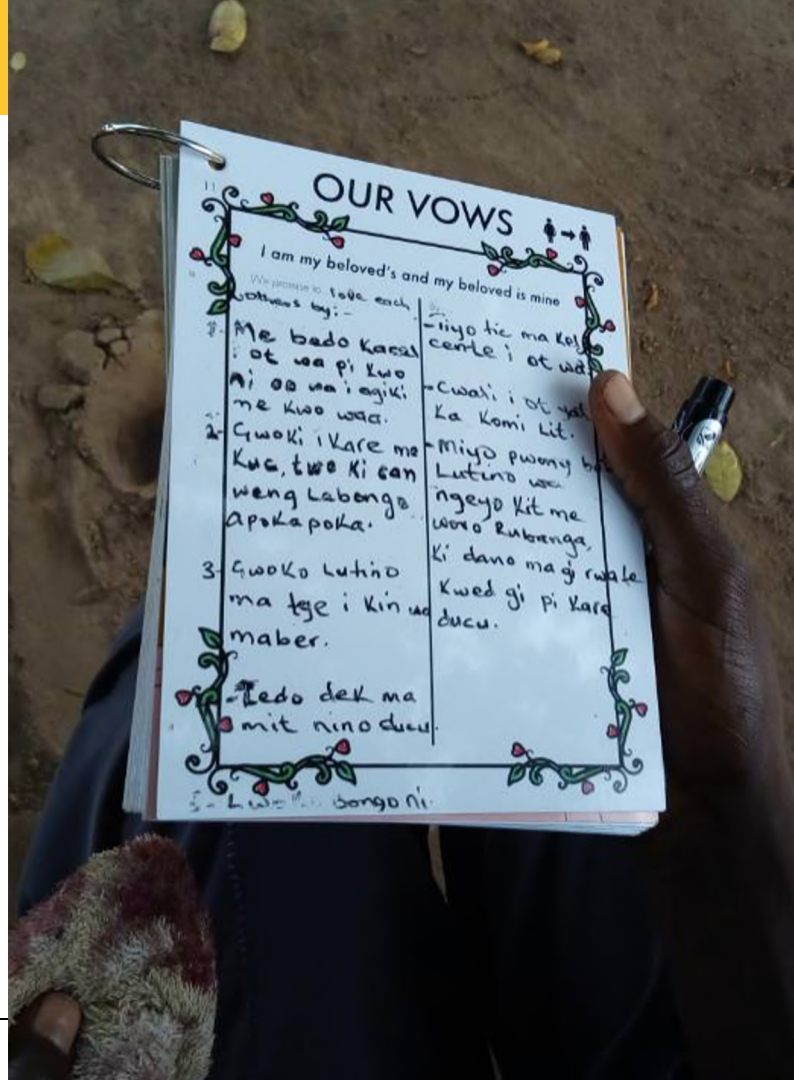 11
OUR VOWS
I am my beloved's and my beloved is mine
We promise to love each
others by:-
1- Me bedo Kacel
i ot wa pi Kwo
Ni oo wa i agiki
me Kwo waa.
2- Gwoki i Kare me
Kuc, two Ki can
weng Labongo
apokapoka.
3- Gwoko Lutino
ma tye i Kin wa
maber.
-Tedo dek ma
mit nino ducu.
bongo ni.
-Tiyo tic ma Kel
cente i ot wa
-Cwali i ot yat
Ka Komi Lit.
-Miyo pwony bot
Lutino wa
ngeyo Kit me
woro Rubanga,
Ki dano ma gi rwate
Kwed gi pi Kare
ducu.